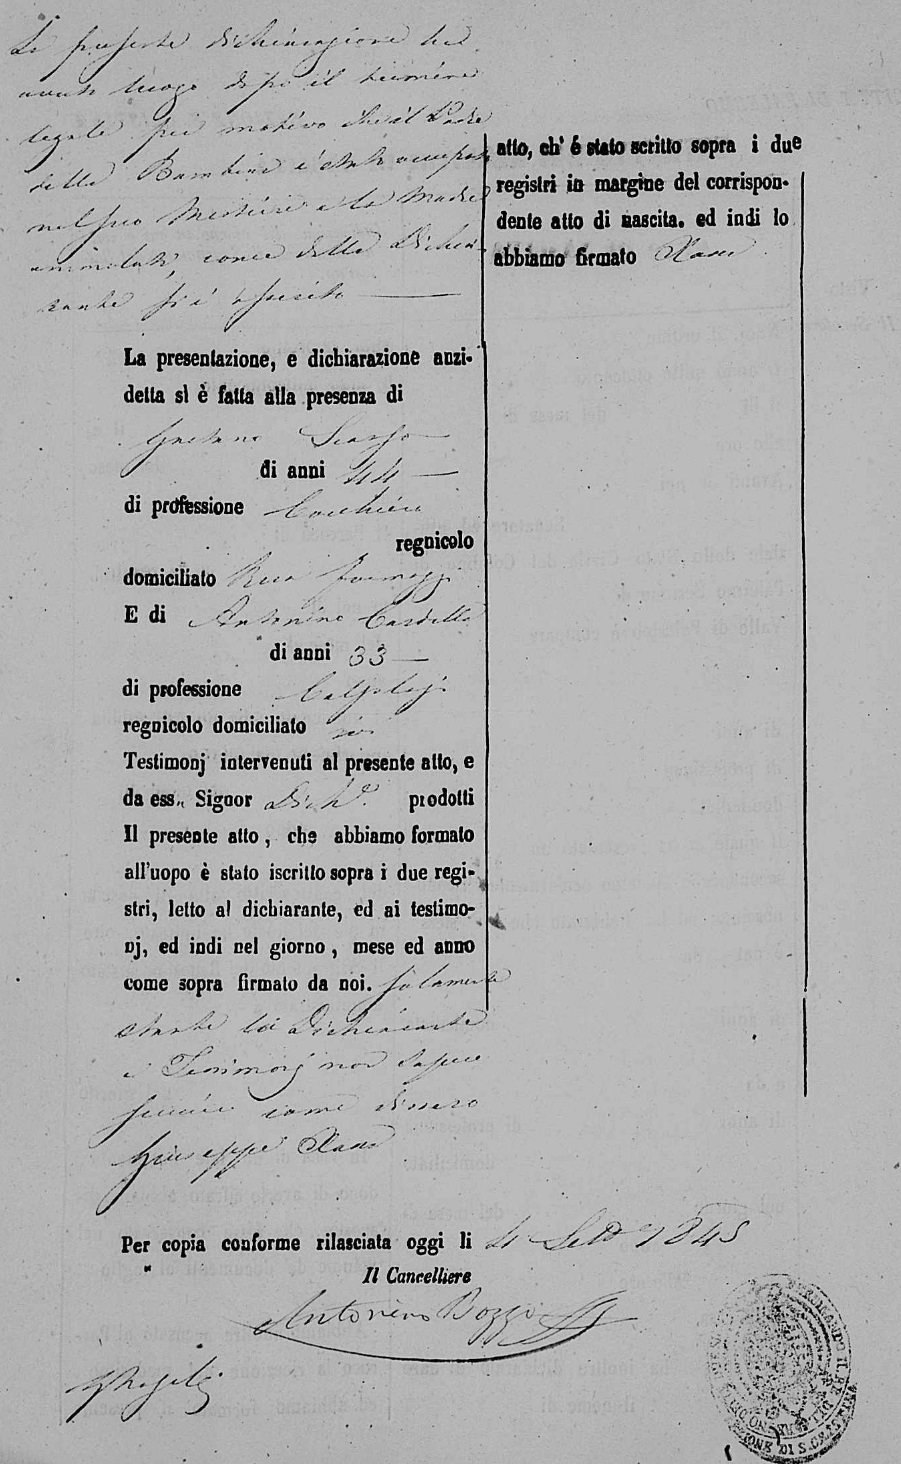 La presente dichiarazione ha
avuto luogo dopo il termine
legale pei motivo che il Padre
della Bambina è stato occupato
nel suo Mestiere e la Madre
ammalata, come dalla Dichia-
rante si è asserito
La presentazione, e dichiarazione anzi-
detta si è fatta alla presenza di
Gaetano
di anni 44
di professione Cocchiere
regnicolo
domiciliato
E di Antonino Cardella
di anni 33
di professione Calzolajo
regnicolo domiciliato ivi
Testimonj intervenuti al presente atto, e
da ess. Signor Dich.e prodotti
Il presente atto, che abbiamo formato
all'uopo è stato iscritto sopra i due regi-
stri, letto al dichiarante, ed ai testimo-
nj, ed indi nel giorno, mese ed anno
come sopra firmato da noi. solamente
stante la Dichiarante
e Testimonj non sapere
scrivere come dissero
Giuseppe
Per copia conforme rilasciata oggi li 4 Sett. 1845
Il Cancelliere
Antonino Bozzo
atto, ch' è stato scritto sopra i due
registri in margine del corrispon-
dente atto di nascita. ed indi lo
abbiamo firmato